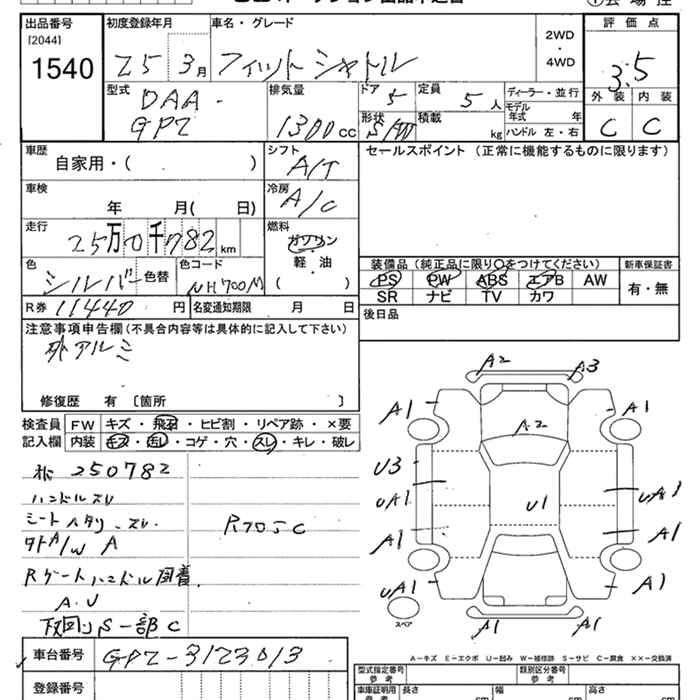 出品番号
[2044]
1540
初度登録年月
25 3月
車名・グレード
フィットシャトル
2WD
・
4WD
評価点
3.5
外装 内装
C C
型式
DAA-
GP2
排気量
1300cc
ドア
5
定員
5人
形状
積載
kg
ディーラー・並行
モデル
年式 年
ハンドル 左・右
車歴
自家用・( )
シフト
A/T
セールスポイント(正常に機能するものに限ります)
車検
年 月( 日)
冷房
A/C
走行
25万0千782km
燃料
ガソリン
軽・油
( )
色
シルバー
色替
色コード
NH700M
装備品(純正品に限り○をつけてください)
PS PW ABS エアB AW
SR ナビ TV カワ
新車保証書
有・無
R券 11440円
名変通知期限 月 日
後日品
注意事項申告欄(不具合内容等は具体的に記入して下さい)
外アルミ
修復歴 有 〔箇所 〕
検査員
記入欄
FW キズ・飛石・ヒビ割・リペア跡・×要
内装 キズ・汚レ・コゲ・穴・スレ・キレ・破レ
250782
ハンドルスレ
シートヘタリ・スレ
A/W A
R705C
Rゲートハンドル固着
A.U
下回りS一部C
A2 A3
A1 A1
A2
U3
UA1 U1 UA1
A1 A1
UA1 A1
A1 A1
スペア
A-キズ E-エクボ U-凹み W-補修跡 S-サビ C-腐食 ××-交換済
車台番号 GP2-3123013
登録番号
型式指定番号
参考
類別区分番号
参考
車庫証明用
参考
長さ cm 幅 cm 高さ cm